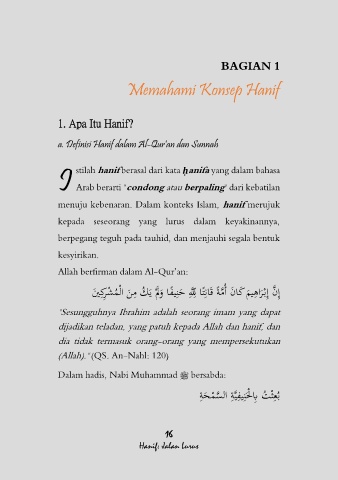 BAGIAN 1
Memahami Konsep Hanif
1. Apa Itu Hanif?
a. Definisi Hanif dalam Al-Qur'an dan Sunnah
Istilah hanif berasal dari kata ḥanifa yang dalam bahasa
Arab berarti "condong atau berpaling" dari kebatilan
menuju kebenaran. Dalam konteks Islam, hanif merujuk
kepada seseorang yang lurus dalam keyakinannya,
berpegang teguh pada tauhid, dan menjauhi segala bentuk
kesyirikan.
Allah berfirman dalam Al-Qur'an:
إِنَّ إِبْرَاهِيمَ كَانَ أُمَّةً قَانِتًا لِّلَّهِ حَنِيفًا وَلَمْ يَكُ مِنَ الْمُشْرِكِينَ
"Sesungguhnya Ibrahim adalah seorang imam yang dapat
dijadikan teladan, yang patuh kepada Allah dan hanif, dan
dia tidak termasuk orang-orang yang mempersekutukan
(Allah)." (QS. An-Nahl: 120)
Dalam hadis, Nabi Muhammad ﷺ bersabda:
بُعِثْتُ بِالْحَنِيفِيَّةِ السَّمْحَةِ
16
Hanif: Jalan Lurus